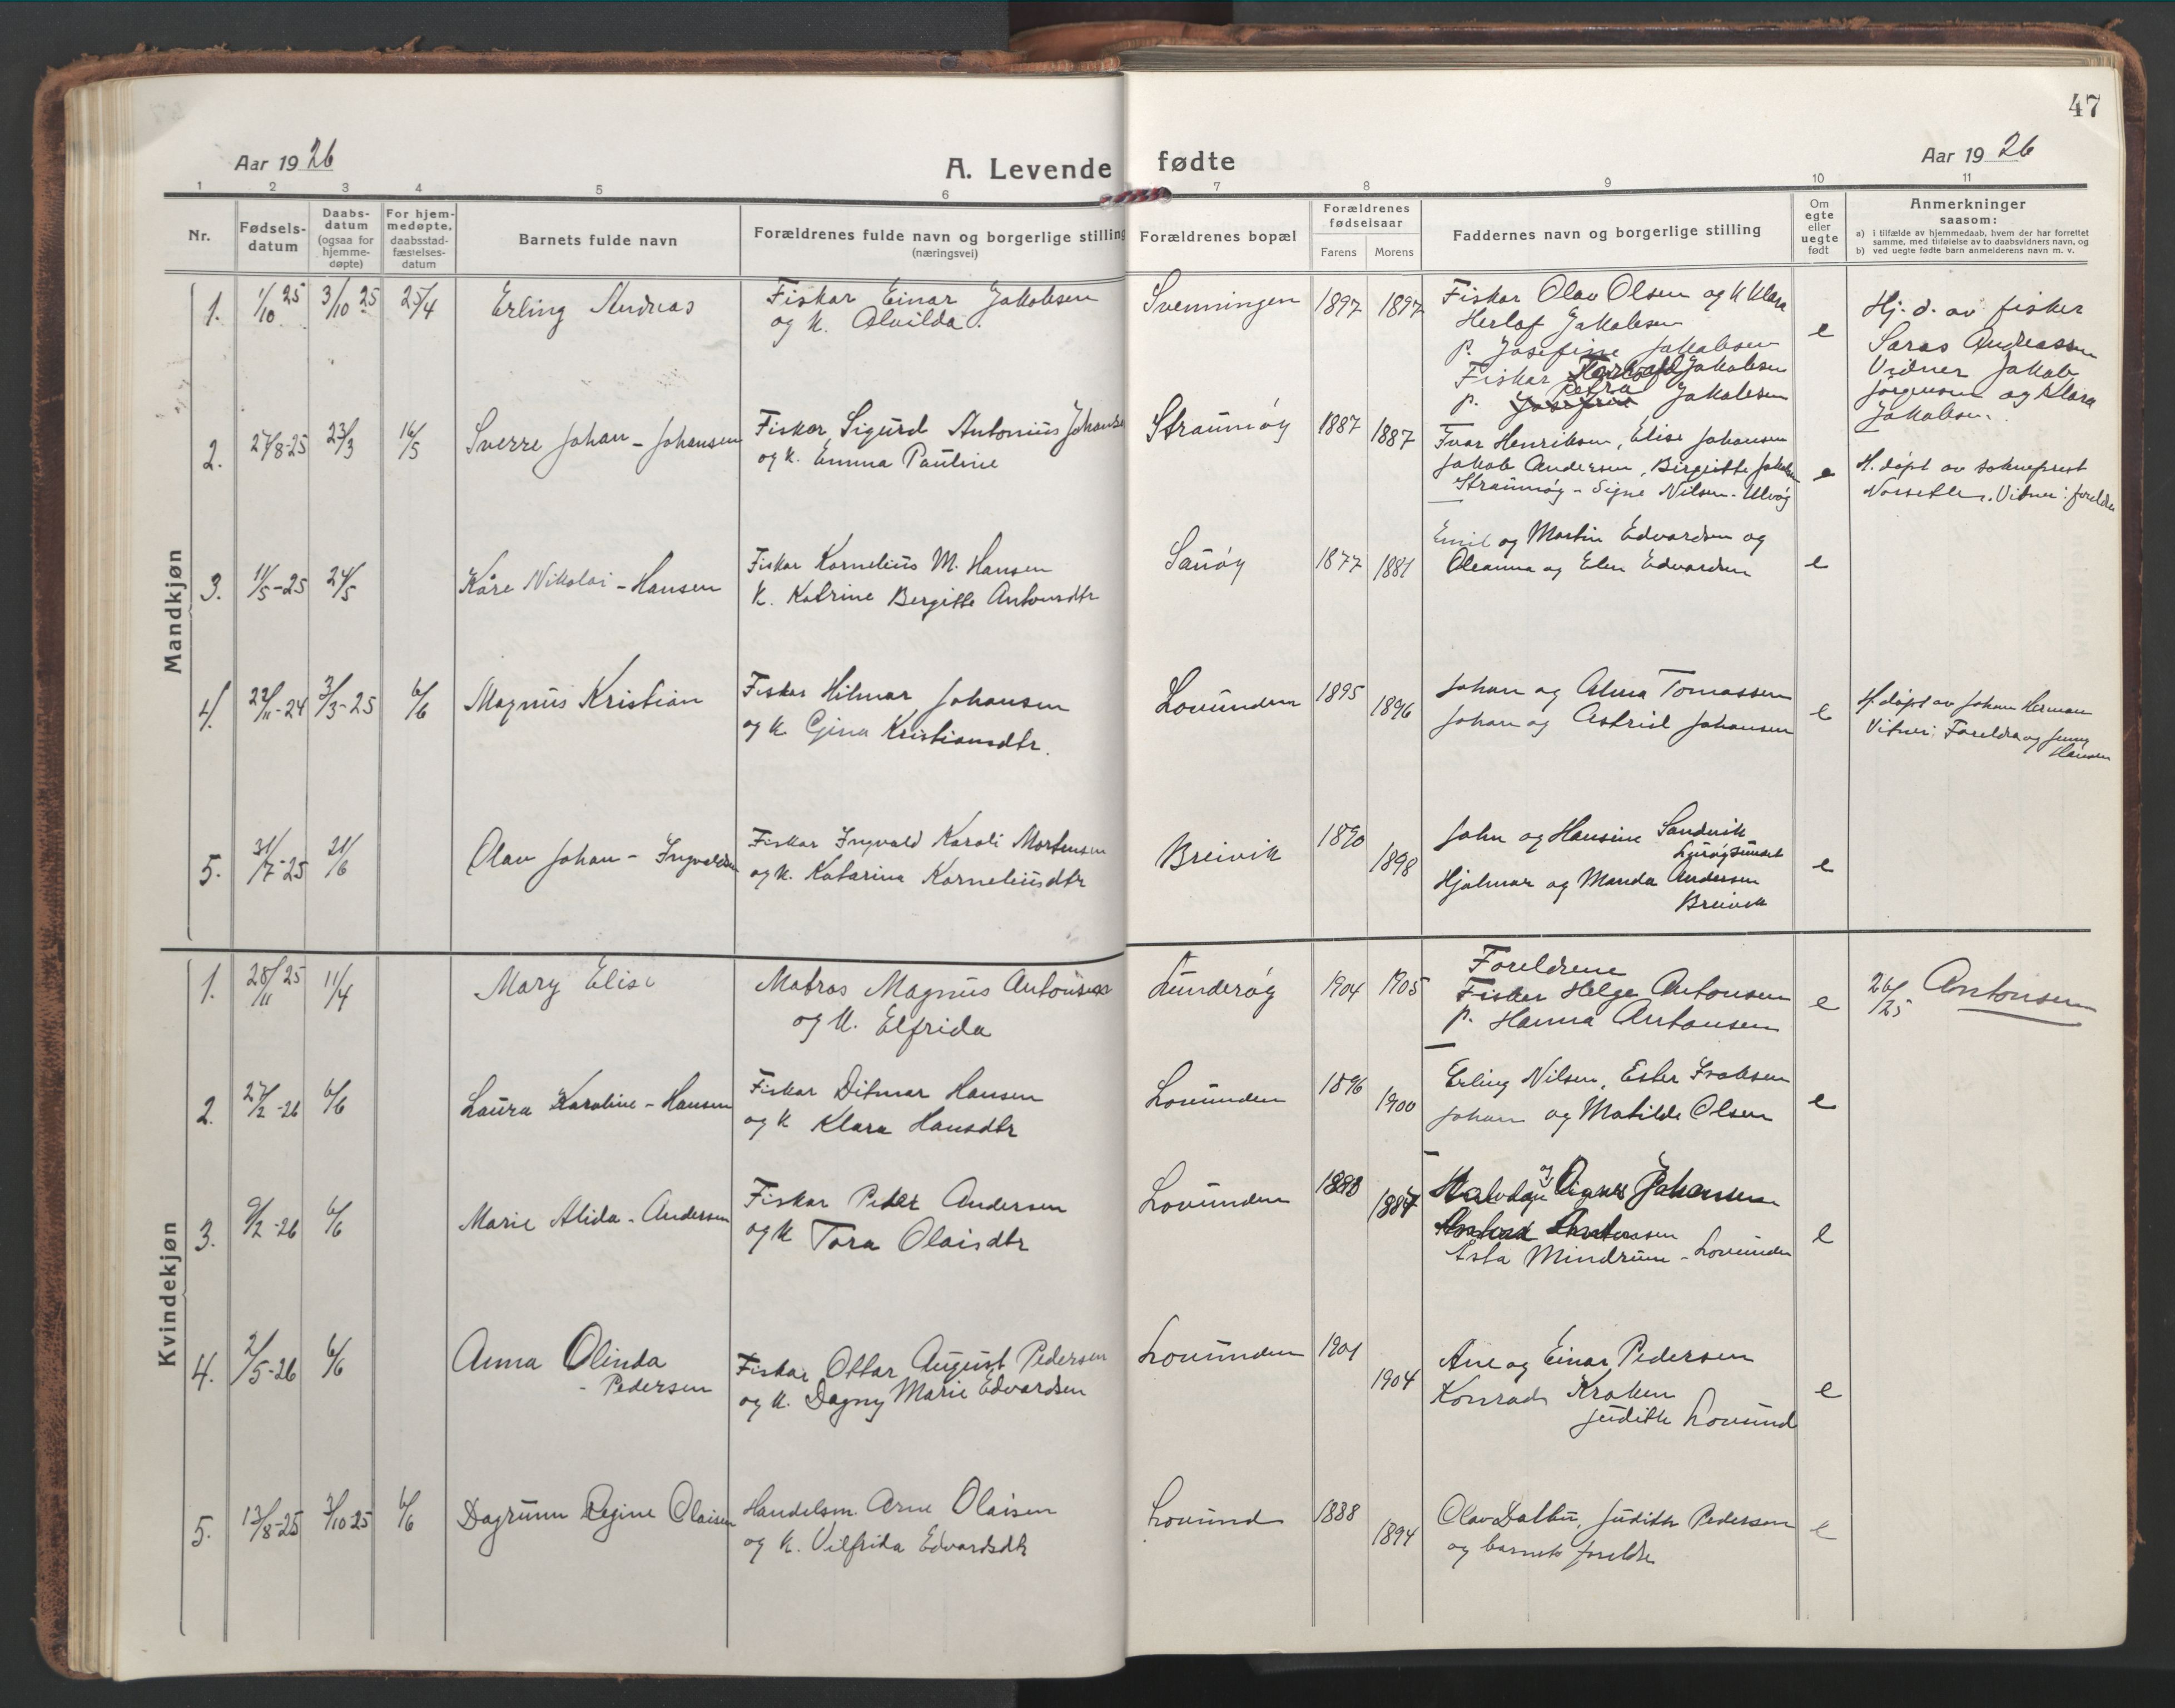 47
Aar 1926
A. Levende fødte
Aar 1926
1 2 3 4 5 6 7 8 9 10 11
Nr.
Fødsels-
datum
Daabs-
datum
(ogsaa for
hjemme-
døpte)
For hjem-
medøpte,
daabsstad-
fæstelses-
datum
Barnets fulde navn
Forældrenes fulde navn og borgerlige stilling
(næringsvei)
Forældrenes bopæl
Forældrenes
fødselsaar
Farens Morens
Faddernes navn og borgerlige stilling
Om
egte
eller
uegte
født
Anmerkninger
saasom:
a) i tilfælde av hjemmedaab, hvem der har forrettet
samme, med tilføielse av to daabsvidners navn, og
b) ved uegte fødte barn anmelderens navn m. v.
Mandkjøn
1. 1/10 25 3/10 25 25/4 Erling Andreas
Fiskar Einar Jakobsen
og K. Alvilda.
Svenningen 1897 1897
Fiskar Olav Olsen og K Klara
Herlof Jakobsen
p. Josefine Jakobsen
Fiskar Jakobsen
p. Petra Jakobsen
e
Hj. d. av fisker
Saras Andreassen
Vidner Jakob
Jørgensen og Klara
Jakobsen.
2. 27/8-25 23/3 16/5 Sverre Johan - Johansen
Fiskar Sigurd Antonius Johansen
og K. Emma Pauline
Straumøy 1887 1887
Ivar Henriksen, Elise Johansen
Jakob Andersen, Birgitte Jakobsen
Straumøy - Signe Nilsen - Ulvøy
e
H. døpt av sokneprest
Norsetle. Vitner: foreldra
3. 11/5-25 24/5 Kåre Nikolai - Hansen
Fiskar Kornelius M. Hansen
K. Katrine Bergitte Antonsdtr
Sanøy 1877 1881
Emil og Martin Edvardsen og
Oleanna og Elen Edvardsen
e
4. 22/11-24 3/3-25 6/6 Magnus Kristian
Fiskar Hilmar Johansen
og K Gina Kristiansdtr.
Lovunden 1895 1896
Johan og Alma Tomassen
Johan og Astrid Johansen
e
H. døpt av Johan Herman
Vitner: Foreldra og Jenny
Hansen
5. 31/7-25 21/6 Olav Johan - Ingvaldsen
Fiskar Ingvald Karoli Mortensen
og K. Katarina Korneliusdtr
Breivik 1890 1898
John og Hansine Sandvik
Lurøysundet
Hjalmar og Manda Andersen
Breivik
e
Kvindekjøn
1. 28/11 25 11/4 Mary Elise
Matros Magnus Antonsen
og K. Elfrida
Lunderøy 1904 1905
Foreldrene
Fisker Helge Antonsen
p. Hanna Antonsen
e
26/25 Antonsen
2. 27/2-26 6/6 Laura Karoline - Hansen
Fiskar Ditmar Hansen
og K Klara Hansdtr
Lovunden 1896 1900
Erling Nilsen, Ester Isaksen
Johan og Matilde Olsen
e
3. 9/2-26 6/6 Marie Alida - Andersen
Fiskar Peder Andersen
og K Tora Olaisdtr
Lovunden 1883 1887
og Agnes Johansen
Asta Mindrum - Lovunden
e
4. 2/5-26 6/6 Anna Olinda
- Pedersen
Fiskar Ottar August Pedersen
og K. Dagny Marie Edvardsen
Lovunden 1901 1904
Ane og Einar Pedersen
Konrad Kraken
Judith Lovund
e
5. 13/8-25 3/10-25 6/6 Dagrunn Regine Olaisen
Handelsm. Arne Olaisen
og K. Vilfrida Edvardsdtr
Lovund 1888 1894
Olav Dalbu, Judith Pedersen
og barnets foreldre
e